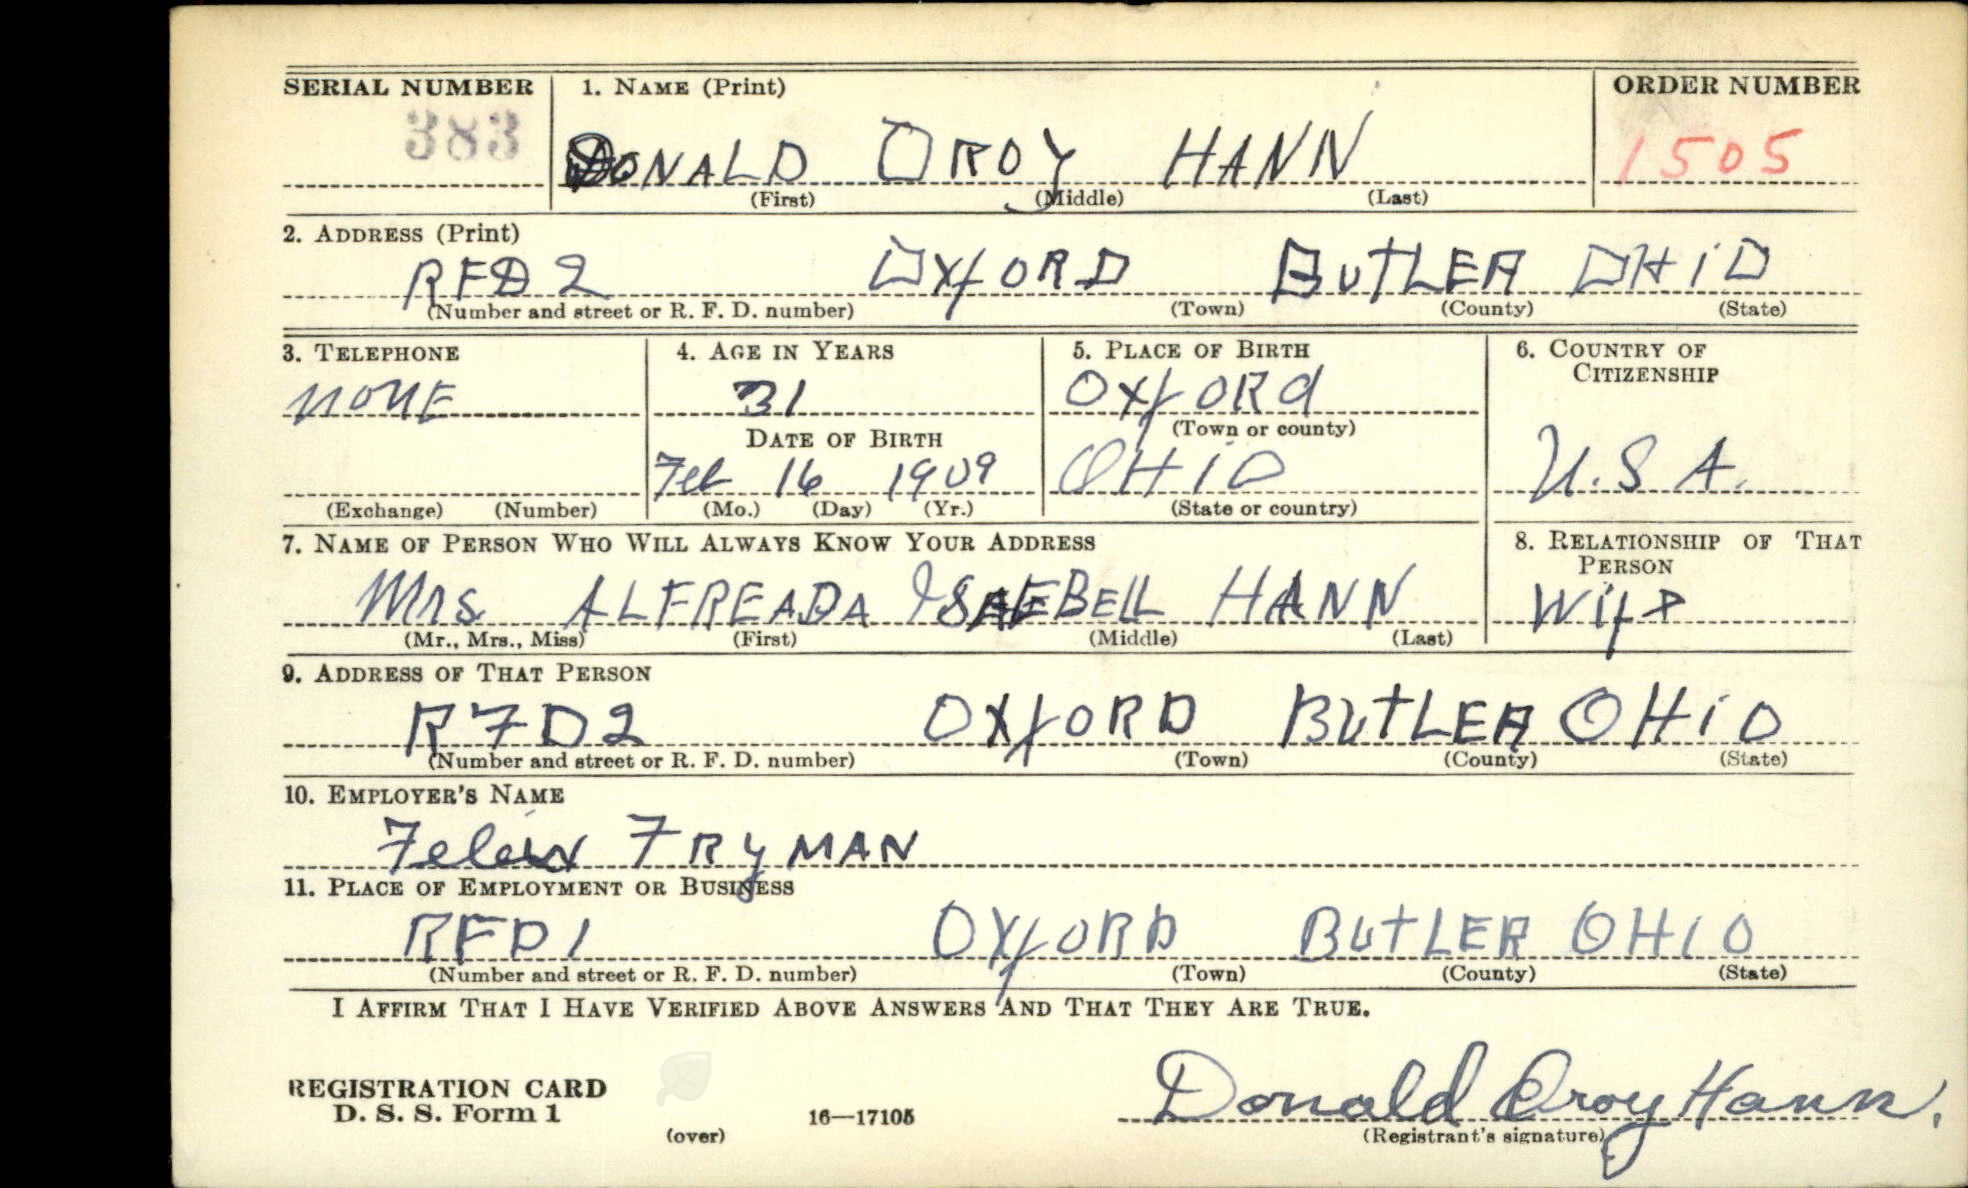 SERIAL NUMBER 1. NAME (Print) ORDER NUMBER
383 DONALD OROY HANN 1505
(First) (Middle) (Last)
2. ADDRESS (Print)
RFD 2 OxfORD BUTLER OHiO
(Number and street or R. F. D. number) (Town) (County) (State)
3. TELEPHONE 4. AGE IN YEARS 5. PLACE OF BIRTH 6. COUNTRY OF CITIZENSHIP
NONE 31 OxfORd
DATE OF BIRTH (Town or county)
Feb 16 1909 OHiO U.S.A.
(Exchange) (Number) (Mo.) (Day) (Yr.) (State or country)
7. NAME OF PERSON WHO WILL ALWAYS KNOW YOUR ADDRESS 8. RELATIONSHIP OF THAT PERSON
Mrs ALFREADA HANN Wife
(Mr., Mrs., Miss) (First) (Middle) (Last)
9. ADDRESS OF THAT PERSON
RFD2 OxfORD BUTLER OHiO
(Number and street or R. F. D. number) (Town) (County) (State)
10. EMPLOYER'S NAME
FRyMAN
11. PLACE OF EMPLOYMENT OR BUSINESS
RFD1 OxfORD BUTLER OHIO
(Number and street or R. F. D. number) (Town) (County) (State)
I AFFIRM THAT I HAVE VERIFIED ABOVE ANSWERS AND THAT THEY ARE TRUE.
REGISTRATION CARD Donald Oroy Hann.
D. S. S. Form 1 16—17105
(over) (Registrant's signature)